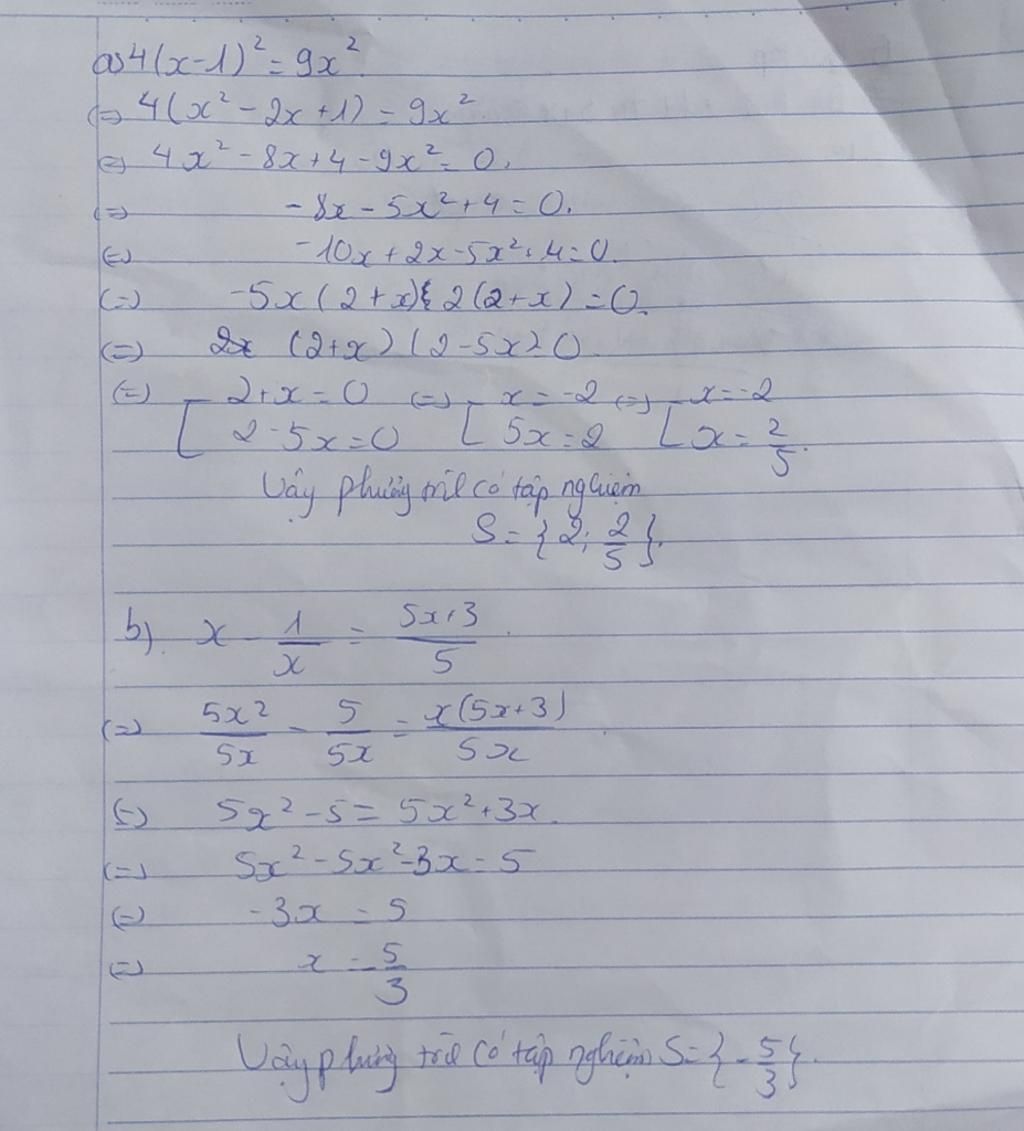 a) 4(x-1)² = 9x²
(=) 4(x² - 2x + 1) = 9x²
(=) 4x² - 8x + 4 - 9x² = 0.
(=) -8x - 5x² + 4 = 0.
(=) -10x + 2x - 5x² + 4 = 0.
(=) -5x(2+x) + 2(2+x) = 0.
(=) (2+x)(2-5x) = 0
(=) [ 2+x = 0 (=) [ x = -2 (=) [ x = -2
2-5x = 0 5x = 2 x = 2/5.
Vậy phương trìl có tập nghiệm
S = { 2; 2/5 }.
b) x - 1/x = 5x+3/5.
(=) 5x²/5x - 5/5x = x(5x+3)/5x.
(=) 5x² - 5 = 5x² + 3x.
(=) 5x² - 5x² - 3x = 5
(=) -3x = 5
(=) x = -5/3
Vậy phương trìl có tập nghiệm S = { -5/3 }.